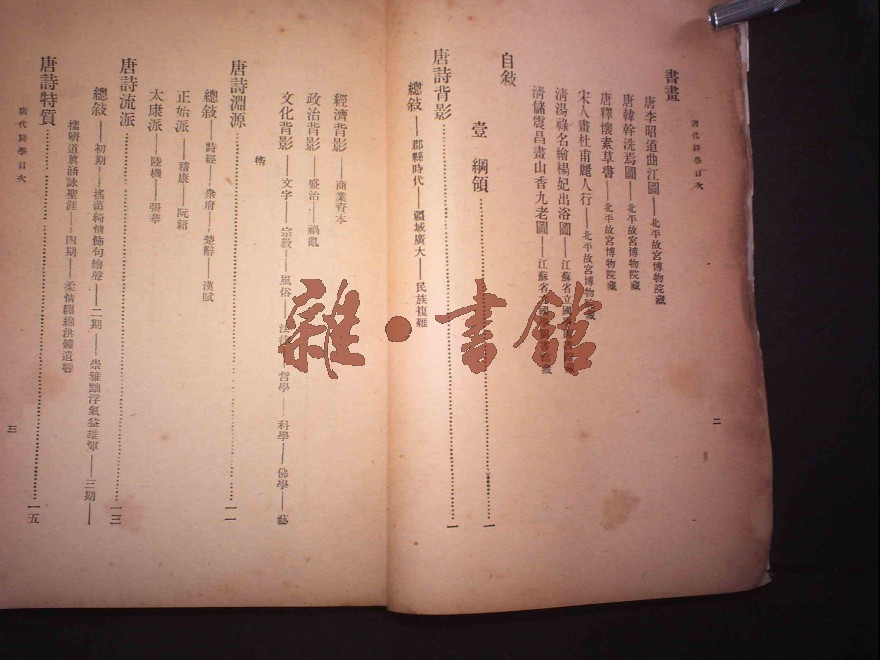 唐代詩學目次
書畫
唐李昭道曲江圖——北平故宮博物院藏
唐韓幹洗馬圖——北平故宮博物院藏
唐釋懷素草書——北平故宮博物院藏
宋人畫杜甫麗人行——北平故宮博物院藏
清湯祿名繪楊妃出浴圖——江蘇省立國
清儲震昌畫山香九老圖——江蘇省立國
二
自敍
壹 綱領……一
唐詩背影……一
總敍——郡縣時代——疆域廣大——民族複雜
經濟背影——商業資本
政治背影——盛治——禍亂
文化背影——文字——宗教——風俗——法律——哲學——科學——佛學——藝
術
唐詩淵源……一一
總敍——詩經——樂府——楚辭——漢賦
正始派——稽康——阮籍
太康派——陸機——張華
唐詩流派……一三
總敍——初期——搖蕩綺情飾句繪聲——二期——崇雅黜浮氣益雄渾——三期——
擩嚌道眞涵詠聖涯——四期——柔情綿洪鐘遺響
唐詩特質……一五
唐代詩學目次
三
雜·書館